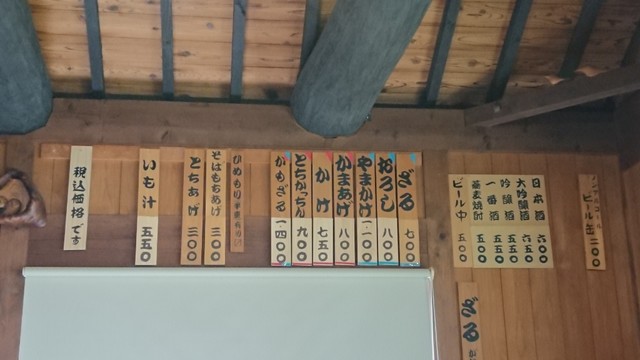 税込価格です
いも汁 五五〇
とちあげ 三〇〇
そばもちあげ 三〇〇
かもざる 一四〇〇
とちがっちん 九〇〇
かけ 七五〇
かまあげ 八〇〇
やまかけ 一一〇〇
おろし 八〇〇
ざる 七〇〇
ビール中 五〇〇
蕎麦焼酎 五五〇
一番酒 五五〇
吟醸酒 五五〇
大吟醸酒 六五〇
日本酒 六〇〇
ビール缶 二〇〇
ざる